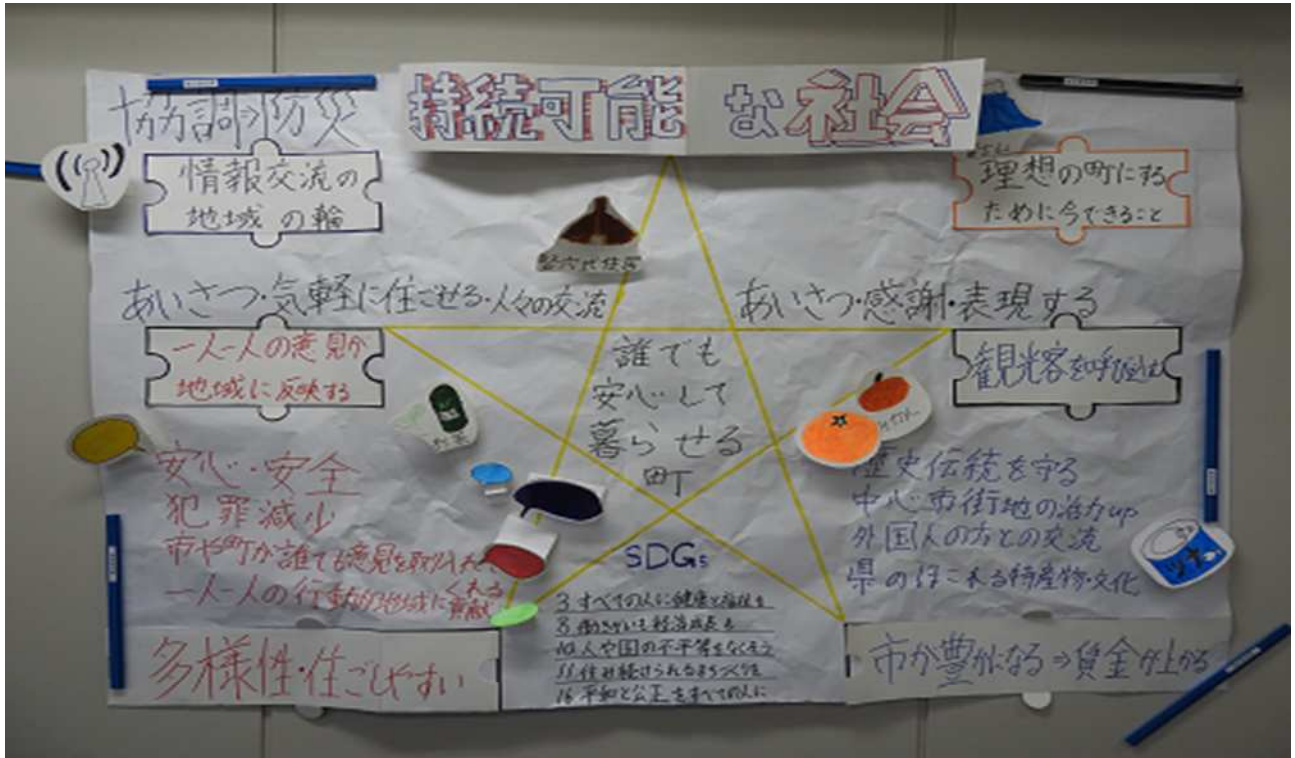 持続可能な社会
協調⇒防災
情報交流の
地域の輪
理想の町にする
ために今できること
竪穴式住居
あいさつ・気軽に住ごせる・人々の交流
あいさつ・感謝・表現する
一人一人の意見が
地域に反映する
誰でも
安心して
暮らせる
町
観光客を呼び込む
お茶
みかん
安心・安全
犯罪減少
市や町が誰でも意見を取り入れてくれる
一人一人の行動が地域に貢献
歴史伝統を守る
中心市街地の活力up
外国人の方との交流
県のほこれる特産物・文化
ツナ
SDGs
3 すべての人に健康と福祉を
8 働きがいも経済成長も
10 人や国の不平等をなくそう
11 住み続けられるまちづくりを
16 平和と公正をすべての人に
多様性・住ごしやすい
市が豊かになる⇒賃金が上がる